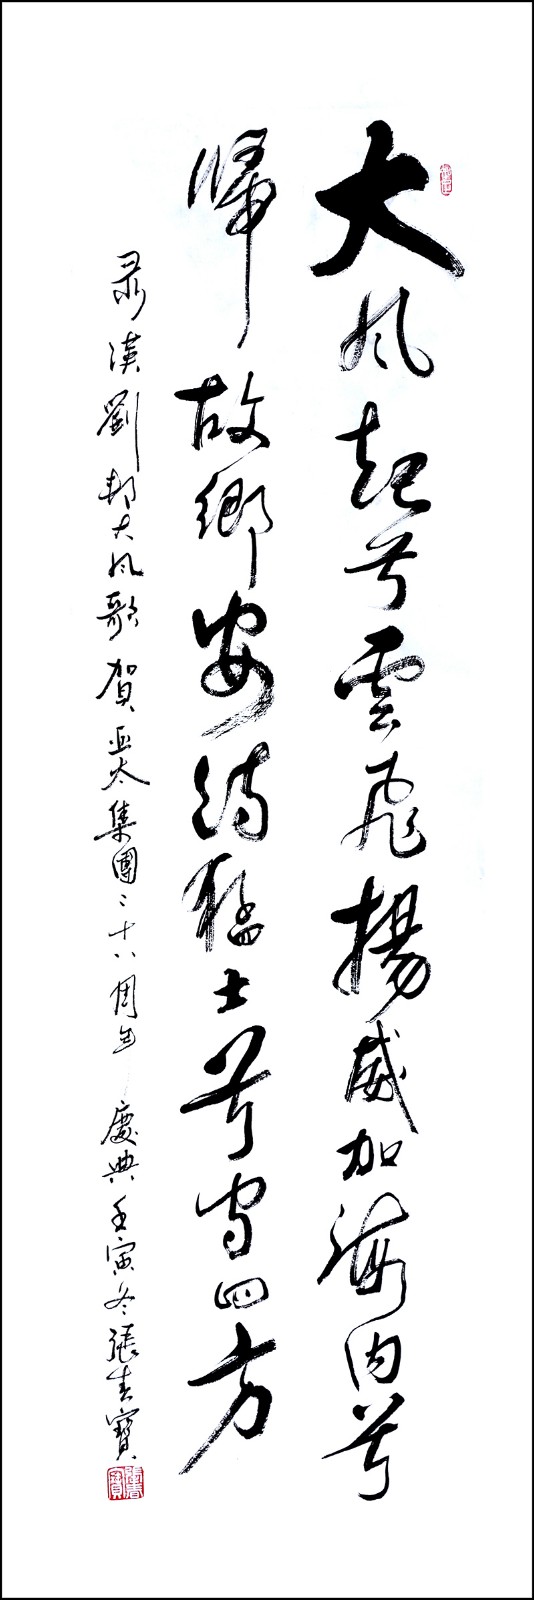 大風起兮雲飛揚威加海內兮
歸故鄉安得猛士兮守四方
錄漢劉邦大風歌賀亞太集團三十八周年慶典壬寅冬張春寶